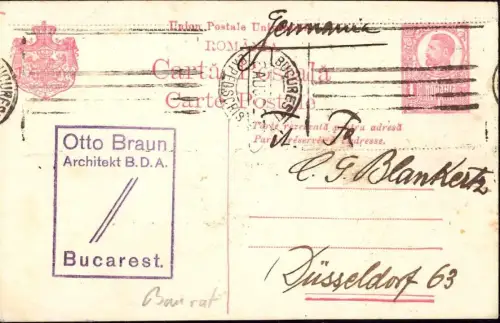 Union Postale Universelle
Germania
ROMÂNIA
Carta Postală
Carte Postale
BUCUREȘTI
Parte rezervată pentru adresă
Partie réservée à l'adresse.
Otto Braun
Architekt B.D.A.
Bucarest.
Fr
C G Blankertz
Düsseldorf 63
Baurat